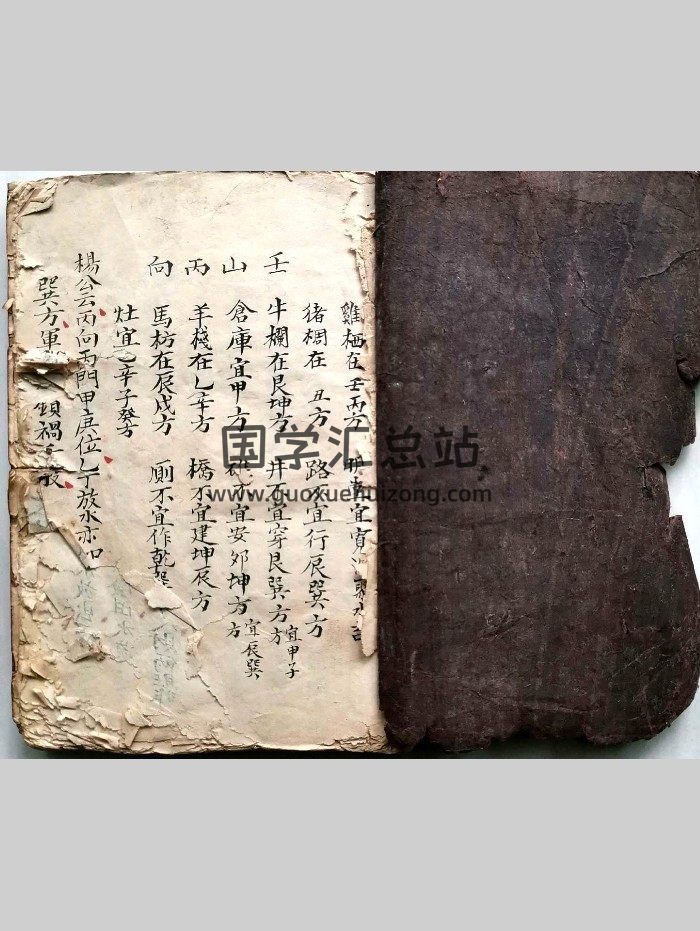 雞栖在壬丙方 宜寅
猪椆在 丑方 路不宜行辰巽方
壬 牛欄在艮坤方 井不宜穿艮巽方 宜甲子方
山 倉庫宜甲方 宜安卯坤方 宜辰巽方
丙 羊棧在乙辛方 橋不宜建坤辰方
向 馬枋在辰戌方 厠不宜作乾巽
灶宜乙辛子癸方
楊公云丙向丙門甲庚位 放水亦如
巽方軍 禍
国学汇总站
www.guoxuehuizong.com